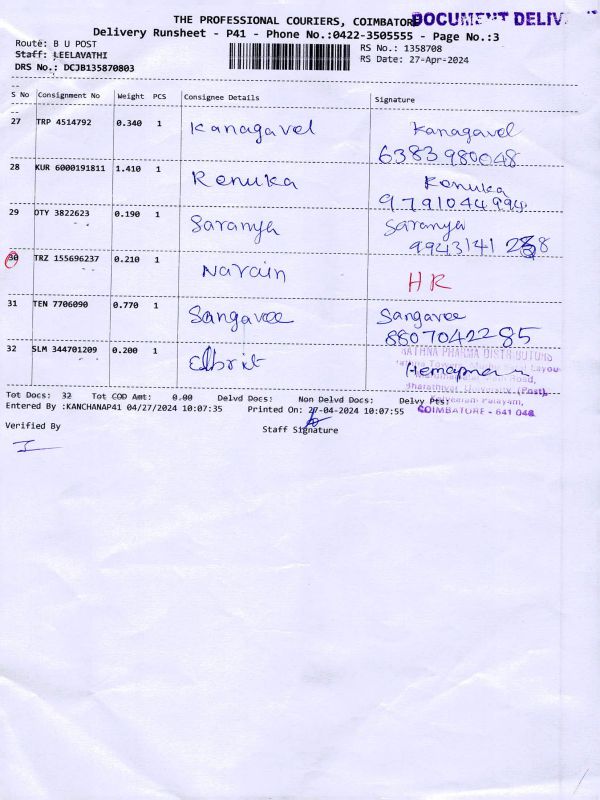 THE PROFESSIONAL COURIERS, COIMBATORE
DOCUMENT DELIV
Delivery Runsheet - P41 - Phone No.:0422-3505555 - Page No.:3
Route: B U POST
RS No.: 1358708
Staff: LEELAVATHI
RS Date: 27-Apr-2024
DRS No.: DCJB135870803
S No Consignment No Weight PCS Consignee Details Signature
27 TRP 4514792 0.340 1 Kanagavel Kanagavel
6383980048
28 KUR 6000191811 1.410 1 Renuka Renuka
9791044994
29 DTY 3822623 0.190 1 Saranya Saranya
9943141238
30 TRZ 155696237 0.210 1 Narain HR
31 TEN 7706090 0.770 1 Sangavee Sangavee
8807042285
32 SLM 344701209 0.200 1 Elbrit
RATHNA PHARMA DISTRIBUTORS
Road,
Bharathiyar University (Post),
COIMBATORE - 641 046
Tot Docs: 32 Tot COD Amt: 0.00 Delvd Docs: Non Delvd Docs: Delvy Pts:
Entered By :KANCHANAP41 04/27/2024 10:07:35 Printed On: 27-04-2024 10:07:55
Verified By
Staff Signature